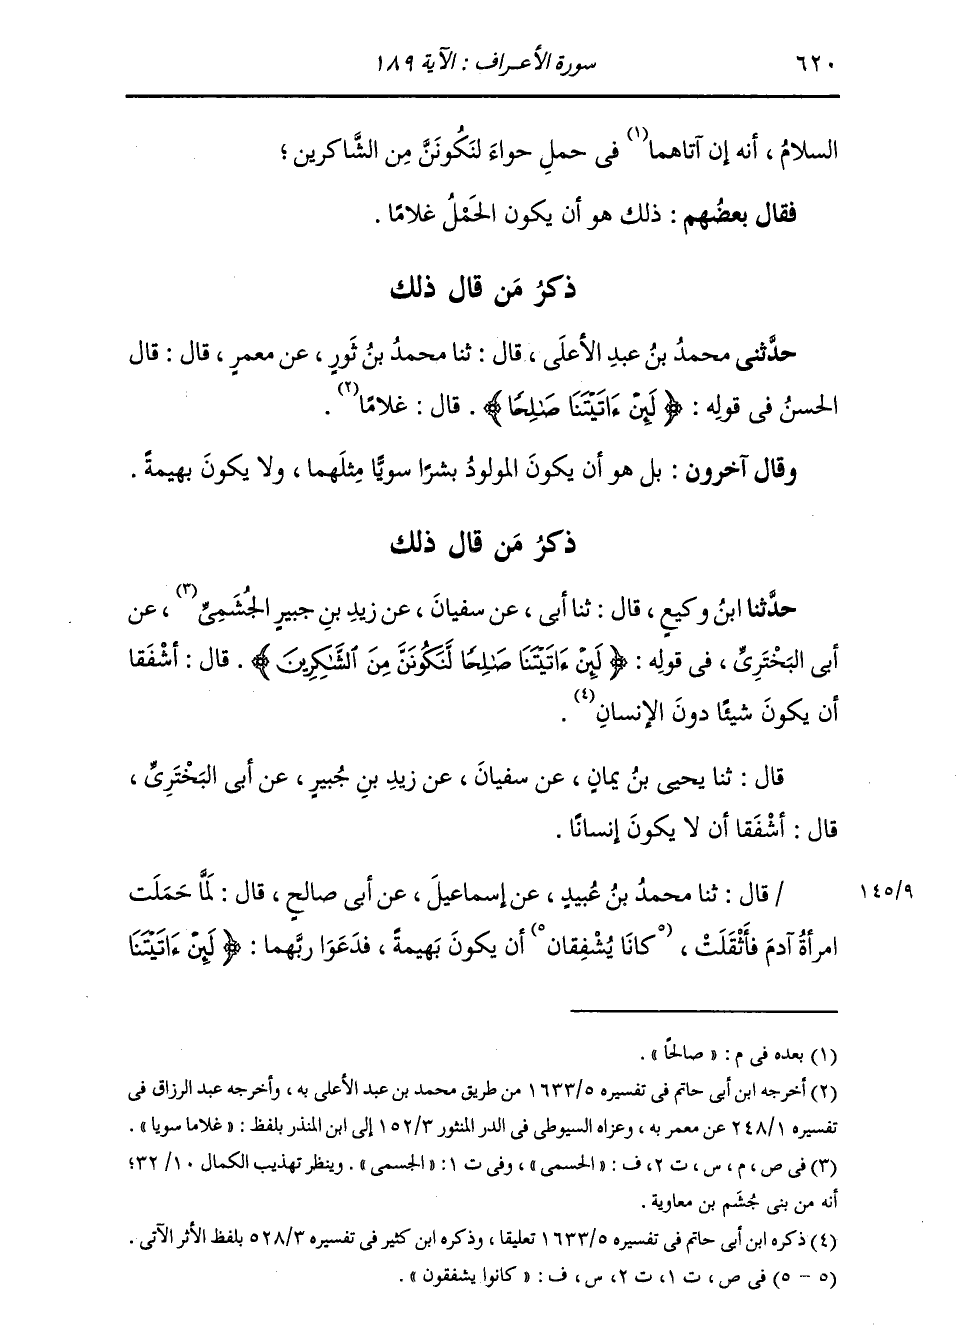 ٦٢٠ سورة الأعراف : الآية ١٨٩
السلامُ ، أنه إن آتاهما(١) فى حملِ حواءَ لنَكُونَنَّ مِن الشَّاكرين ؛
فقال بعضُهم : ذلك هو أن يكون الحَمْلُ غلامًا .
ذكرُ مَن قال ذلك
حدَّثنى محمدُ بنُ عبدِ الأعلَى ، قال : ثنا محمدُ بنُ ثَورٍ ، عن معمرٍ ، قال : قال
الحسنُ فى قولِه : ﴿ لَئِنْ ءَاتَيْتَنَا صَـٰلِحًا ﴾ . قال : غلامًا(٢) .
وقال آخرون : بل هو أن يكونَ المولودُ بشرًا سويًّا مِثلَهما ، ولا يكونَ بهيمةً .
ذكرُ مَن قال ذلك
حدَّثنا ابنُ وكيعٍ ، قال : ثنا أبى ، عن سفيانَ ، عن زيدِ بنِ جبيرٍ الجُشَمِىِّ(٣) ، عن
أبى البَخْتَرِىِّ ، فى قولِه : ﴿ لَئِنْ ءَاتَيْتَنَا صَـٰلِحًا لَّنَكُونَنَّ مِنَ ٱلشَّـٰكِرِينَ ﴾ . قال : أشْفَقا
أن يكونَ شيئًا دونَ الإنسانِ(٤) .
قال : ثنا يحيى بنُ يمانٍ ، عن سفيانَ ، عن زيدِ بنِ جُبيرٍ ، عن أبى البَخْتَرِىِّ ،
قال : أشْفَقا أن لا يكونَ إنسانًا .
١٤٥/٩ / قال : ثنا محمدُ بنُ عُبيدٍ ، عن إسماعيلَ ، عن أبى صالحٍ ، قال : لَمَّا حَمَلَت
امرأةُ آدمَ فأَثْقَلَتْ ، (٥كانَا يُشْفِقان٥) أن يكونَ بَهيمةً ، فدَعَوَا ربَّهما : ﴿ لَئِنْ ءَاتَيْتَنَا
(١) بعده فى م : « صالحًا » .
(٢) أخرجه ابن أبى حاتم فى تفسيره ١٦٣٣/٥ من طريق محمد بن عبد الأعلى به ، وأخرجه عبد الرزاق فى
تفسيره ٢٤٨/١ عن معمر به ، وعزاه السيوطى فى الدر المنثور ١٥٢/٣ إلى ابن المنذر بلفظ : « غلاما سويا » .
(٣) فى ص ، م ، س ، ت ٢، ف : « الحسمى » ، وفى ت ١: « الجسمى » . وينظر تهذيب الكمال ١٠/ ٣٢؛
أنه من بنى جُشَم بن معاوية .
(٤) ذكره ابن أبى حاتم فى تفسيره ١٦٣٣/٥ تعليقا ، وذكره ابن كثير فى تفسيره ٥٢٨/٣ بلفظ الأثر الآتى .
(٥ - ٥) فى ص ، ت ١، ت ٢، س ، ف : « كانوا يشفقون » .